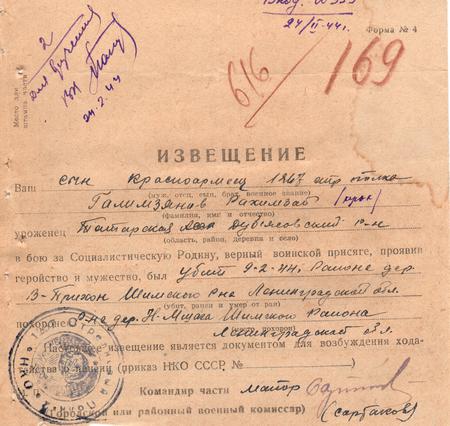 24/II-44г.
Форма № 4
2
для вручения
24.2.44
616/
169
Место для
штампа части
ИЗВЕЩЕНИЕ
Ваш сын красноармеец 1267 стр полка
(муж, отец, сын, брат, военное звание)
Галимзянов Рахимзан
(фамилия, имя и отчество)
уроженец Татарская Дубьязовский р-н
(область, район, деревня и село)
в бою за Социалистическую Родину, верный воинской присяге, проявив
геройство и мужество, был убит 9-2-44г Районе дер.
Шимского р-на Ленинградской обл.
(убит, ранен и умер от ран)
похоронен дер. Н-Мшага Шимского Района
Ленинградской обл.
Настоящее извещение является документом для возбуждения хода-
тайства о пенсии (приказ НКО СССР, №
Командир части майор
(Городской или районный военный комиссар) (Сартаков)